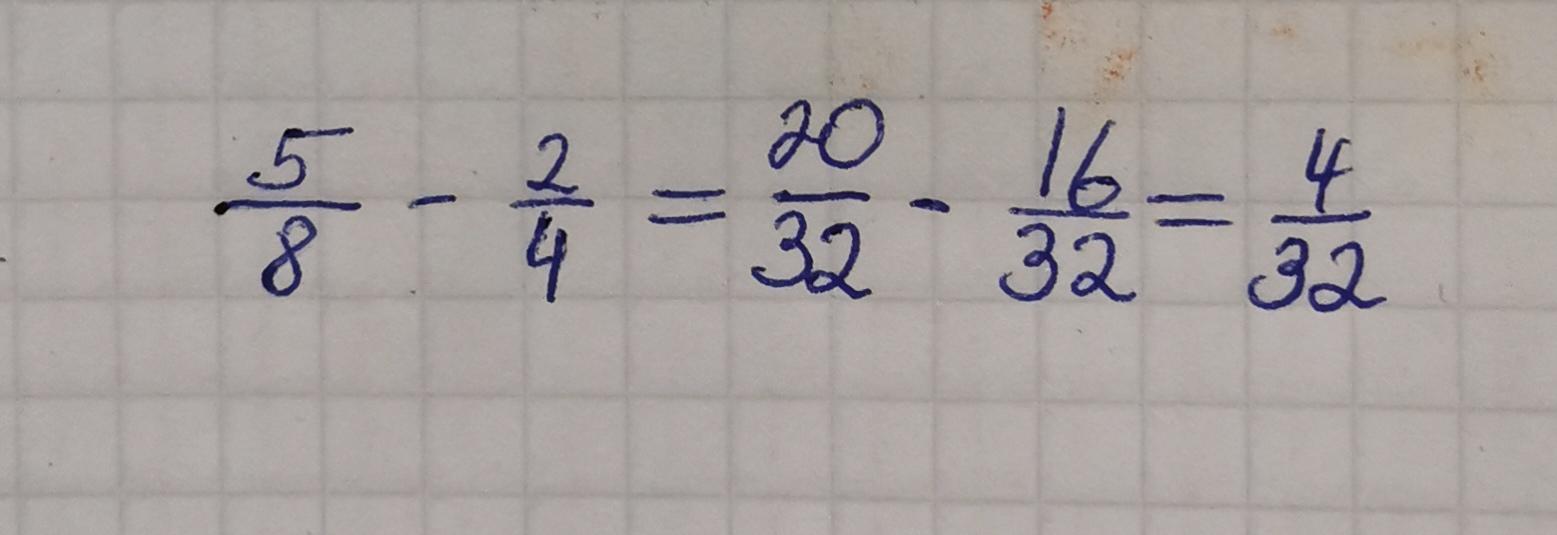 5/8 - 2/4 = 20/32 - 16/32 = 4/32